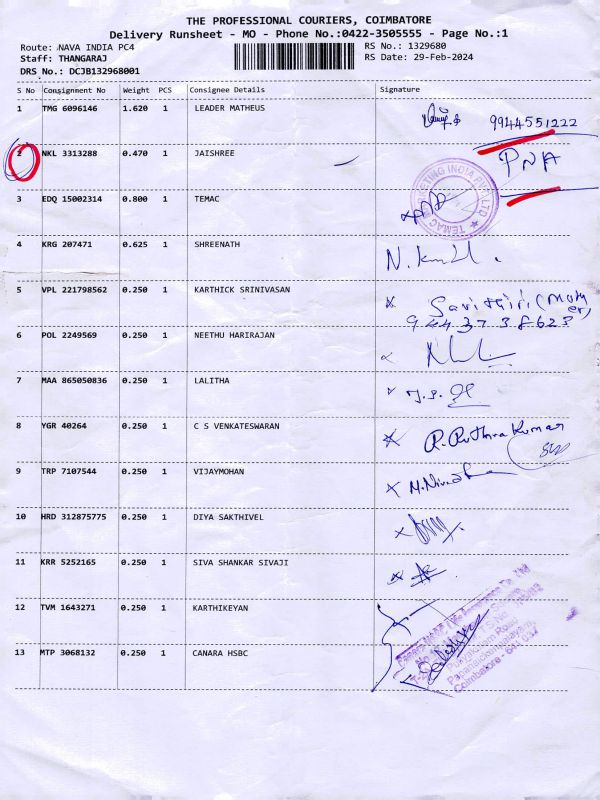 THE PROFESSIONAL COURIERS, COIMBATORE
Delivery Runsheet - MO - Phone No.:0422-3505555 - Page No.:1
Route: NAVA INDIA PC4 RS No.: 1329680
Staff: THANGARAJ RS Date: 29-Feb-2024
DRS No.: DCJB132968001
S No Consignment No Weight PCS Consignee Details Signature
1 TMG 6096146 1.620 1 LEADER MATHEUS
9944551222
2 NKL 3313288 0.470 1 JAISHREE PNA
3 EDQ 15002314 0.800 1 TEMAC
TEMAC MARKETING INDIA PVT LTD
4 KRG 207471 0.625 1 SHREENATH
5 VPL 221798562 0.250 1 KARTHICK SRINIVASAN
6 POL 2249569 0.250 1 NEETHU HARIRAJAN
7 MAA 865050836 0.250 1 LALITHA
8 YGR 40264 0.250 1 C S VENKATESWARAN
9 TRP 7107544 0.250 1 VIJAYMOHAN
10 HRD 312875775 0.250 1 DIYA SAKTHIVEL
11 KRR 5252165 0.250 1 SIVA SHANKAR SIVAJI
12 TVM 1643271 0.250 1 KARTHIKEYAN
13 MTP 3068132 0.250 1 CANARA HSBC
Coimbatore - 641 037